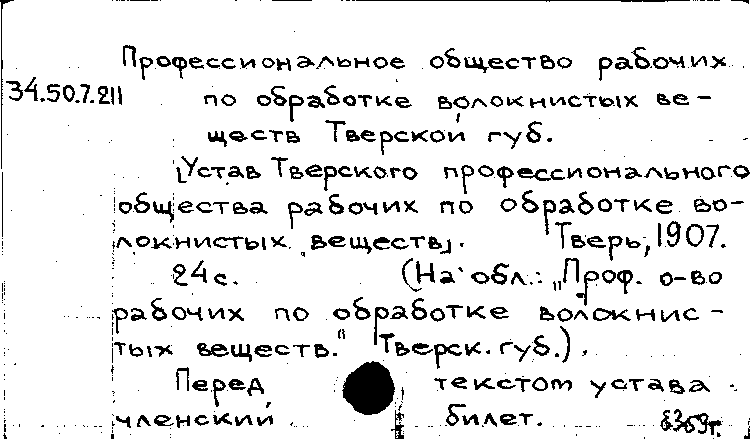 Профессиональное общество рабочих
34.50.7.211 по обработке волокнистых ве-
ществ Тверской губ.
[Устав Тверского профессионального
общества рабочих по обработке во-
локнистых веществ]. Тверь, 1907.
24 с. (На обл.: "Проф. о-во
рабочих по обработке волокнис-
тых веществ." Тверск. губ.).
Перед текстом устава
членский билет.